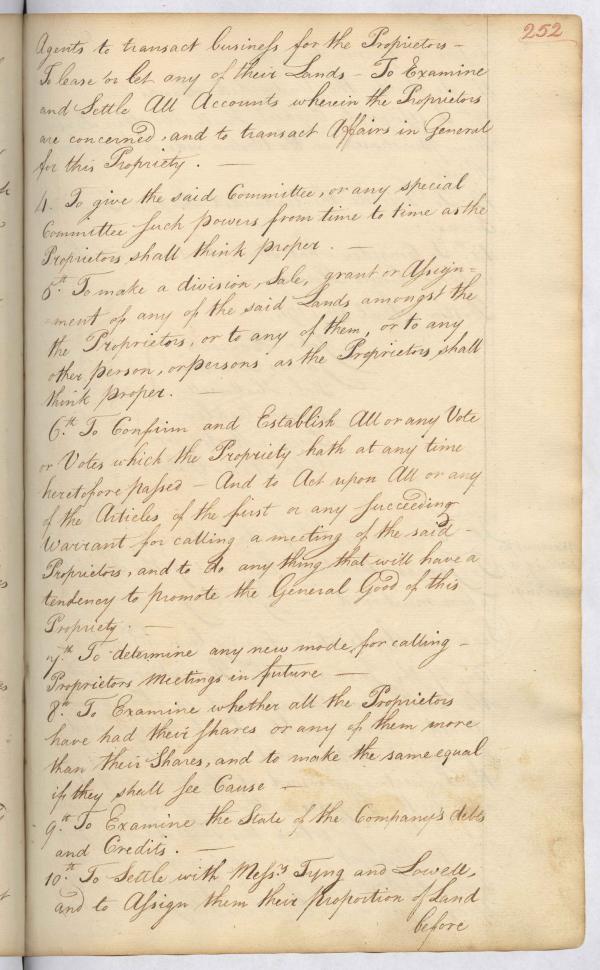 252
Agents to transact business for the Proprietors –
To lease or let any of their Lands – To Examine
and Settle All Accounts wherein the Proprietors
are concerned, and to transact Affairs in General
for this Propriety. —
4. To give the said Committee, or any special
Committee such powers from time to time as the
Proprietors shall think proper. —
5th. To make a division, Sale, grant or Assign=
=ment of any of the said Lands amongst the
the Proprietors, or to any of them, or to any
other person, or persons as the Proprietors shall
think proper. —
6.th To Confirm and Establish All or any Vote
or Votes which the Propriety hath at any time
heretofore passed – And to Act upon All or any
of the Articles of the first or any succeeding
Warrant for calling a meeting of the said –
Proprietors, and to do any thing that will have a
tendency to promote the General Good of this
Propriety. —
7.th To determine any new mode for calling –
Proprietors Meetings in future —
8.th To Examine whether all the Proprietors
have had their shares or any of them more
than their Shares, and to make the same equal
if they shall see Cause —
9.th To Examine the State of the Company's debts
and Credits. —
10.th To Settle with Mess.rs Tyng and Lowell,
and to Assign them their proportion of Land
before